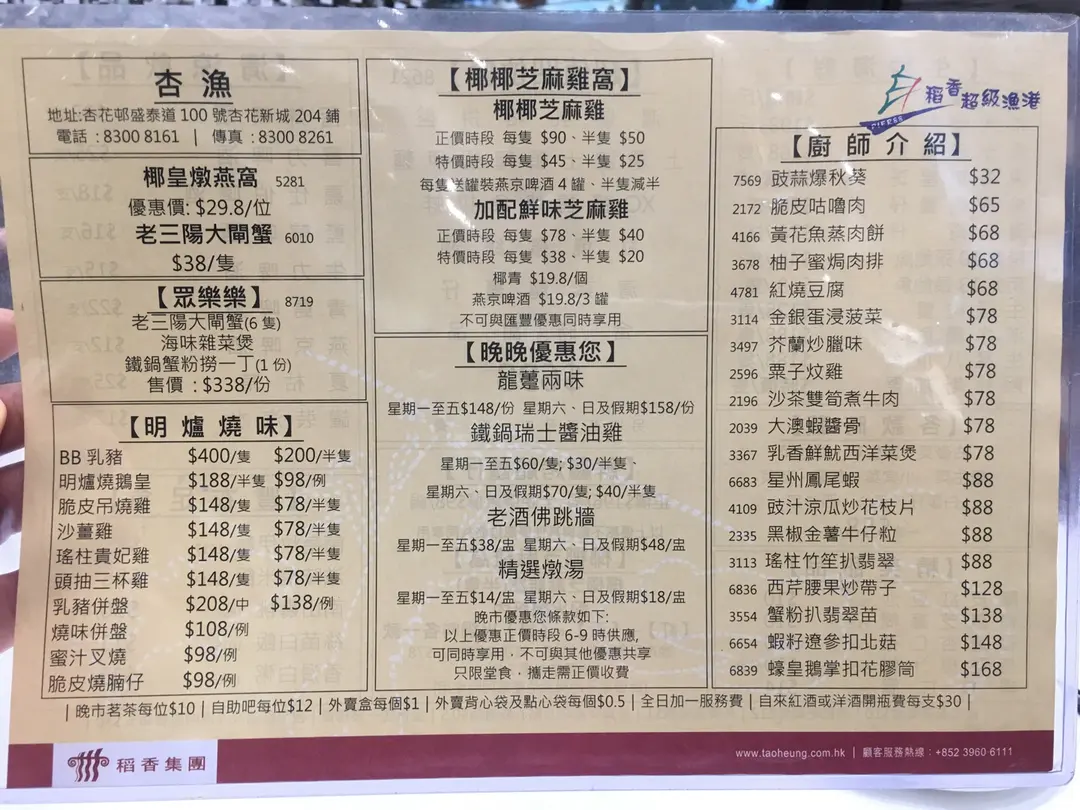 杏漁
地址:杏花邨盛泰道 100 號杏花新城 204 鋪
電話 : 8300 8161 | 傳真 : 8300 8261
椰皇燉燕窩 5281
優惠價: $29.8/位
老三陽大閘蟹 6010
$38/隻
【眾樂樂】 8719
老三陽大閘蟹(6 隻)
海味雜菜煲
鐵鍋蟹粉撈一丁(1 份)
售價 : $338/份
【明爐燒味】
BB 乳豬 $400/隻 $200/半隻
明爐燒鵝皇 $188/半隻 $98/例
脆皮吊燒雞 $148/隻 $78/半隻
沙薑雞 $148/隻 $78/半隻
瑤柱貴妃雞 $148/隻 $78/半隻
頭抽三杯雞 $148/隻 $78/半隻
乳豬併盤 $208/中 $138/例
燒味併盤 $108/例
蜜汁叉燒 $98/例
脆皮燒腩仔 $98/例
【椰椰芝麻雞窩】
椰椰芝麻雞
正價時段 每隻 $90、半隻 $50
特價時段 每隻 $45、半隻 $25
每隻送罐裝燕京啤酒 4 罐、半隻減半
加配鮮味芝麻雞
正價時段 每隻 $78、半隻 $40
特價時段 每隻 $38、半隻 $20
椰青 $19.8/個
燕京啤酒 $19.8/3 罐
不可與匯豐優惠同時享用
【晚晚優惠您】
龍躉兩味
星期一至五$148/份 星期六、日及假期$158/份
鐵鍋瑞士醬油雞
星期一至五$60/隻; $30/半隻、
星期六、日及假期$70/隻; $40/半隻
老酒佛跳牆
星期一至五$38/盅 星期六、日及假期$48/盅
精選燉湯
星期一至五$14/盅 星期六、日及假期$18/盅
晚市優惠您條款如下:
以上優惠正價時段 6-9 時供應,
可同時享用，不可與其他優惠共享
只限堂食，攜走需正價收費
稻香超級漁港
【廚師介紹】
7569 豉蒜爆秋葵 $32
2172 脆皮咕嚕肉 $65
4166 黃花魚蒸肉餅 $68
3678 柚子蜜焗肉排 $68
4781 紅燒豆腐 $68
3114 金銀蛋浸菠菜 $78
3497 芥蘭炒臘味 $78
2596 粟子炆雞 $78
2196 沙茶雙筍煮牛肉 $78
2039 大澳蝦醬骨 $78
3367 乳香鮮魷西洋菜煲 $78
6683 星州鳳尾蝦 $88
4109 豉汁涼瓜炒花枝片 $88
2335 黑椒金薯牛仔粒 $88
3113 瑤柱竹笙扒翡翠 $88
6836 西芹腰果炒帶子 $128
3554 蟹粉扒翡翠苗 $138
6654 蝦籽遼參扣北菇 $148
6839 蠔皇鵝掌扣花膠筒 $168
| 晚市茗茶每位$10 | 自助吧每位$12 | 外賣盒每個$1 | 外賣背心袋及點心袋每個$0.5 | 全日加一服務費 | 自來紅酒或洋酒開瓶費每支$30 |
稻香集團
www.taoheung.com.hk | 顧客服務熱線 : +852 3960 6111